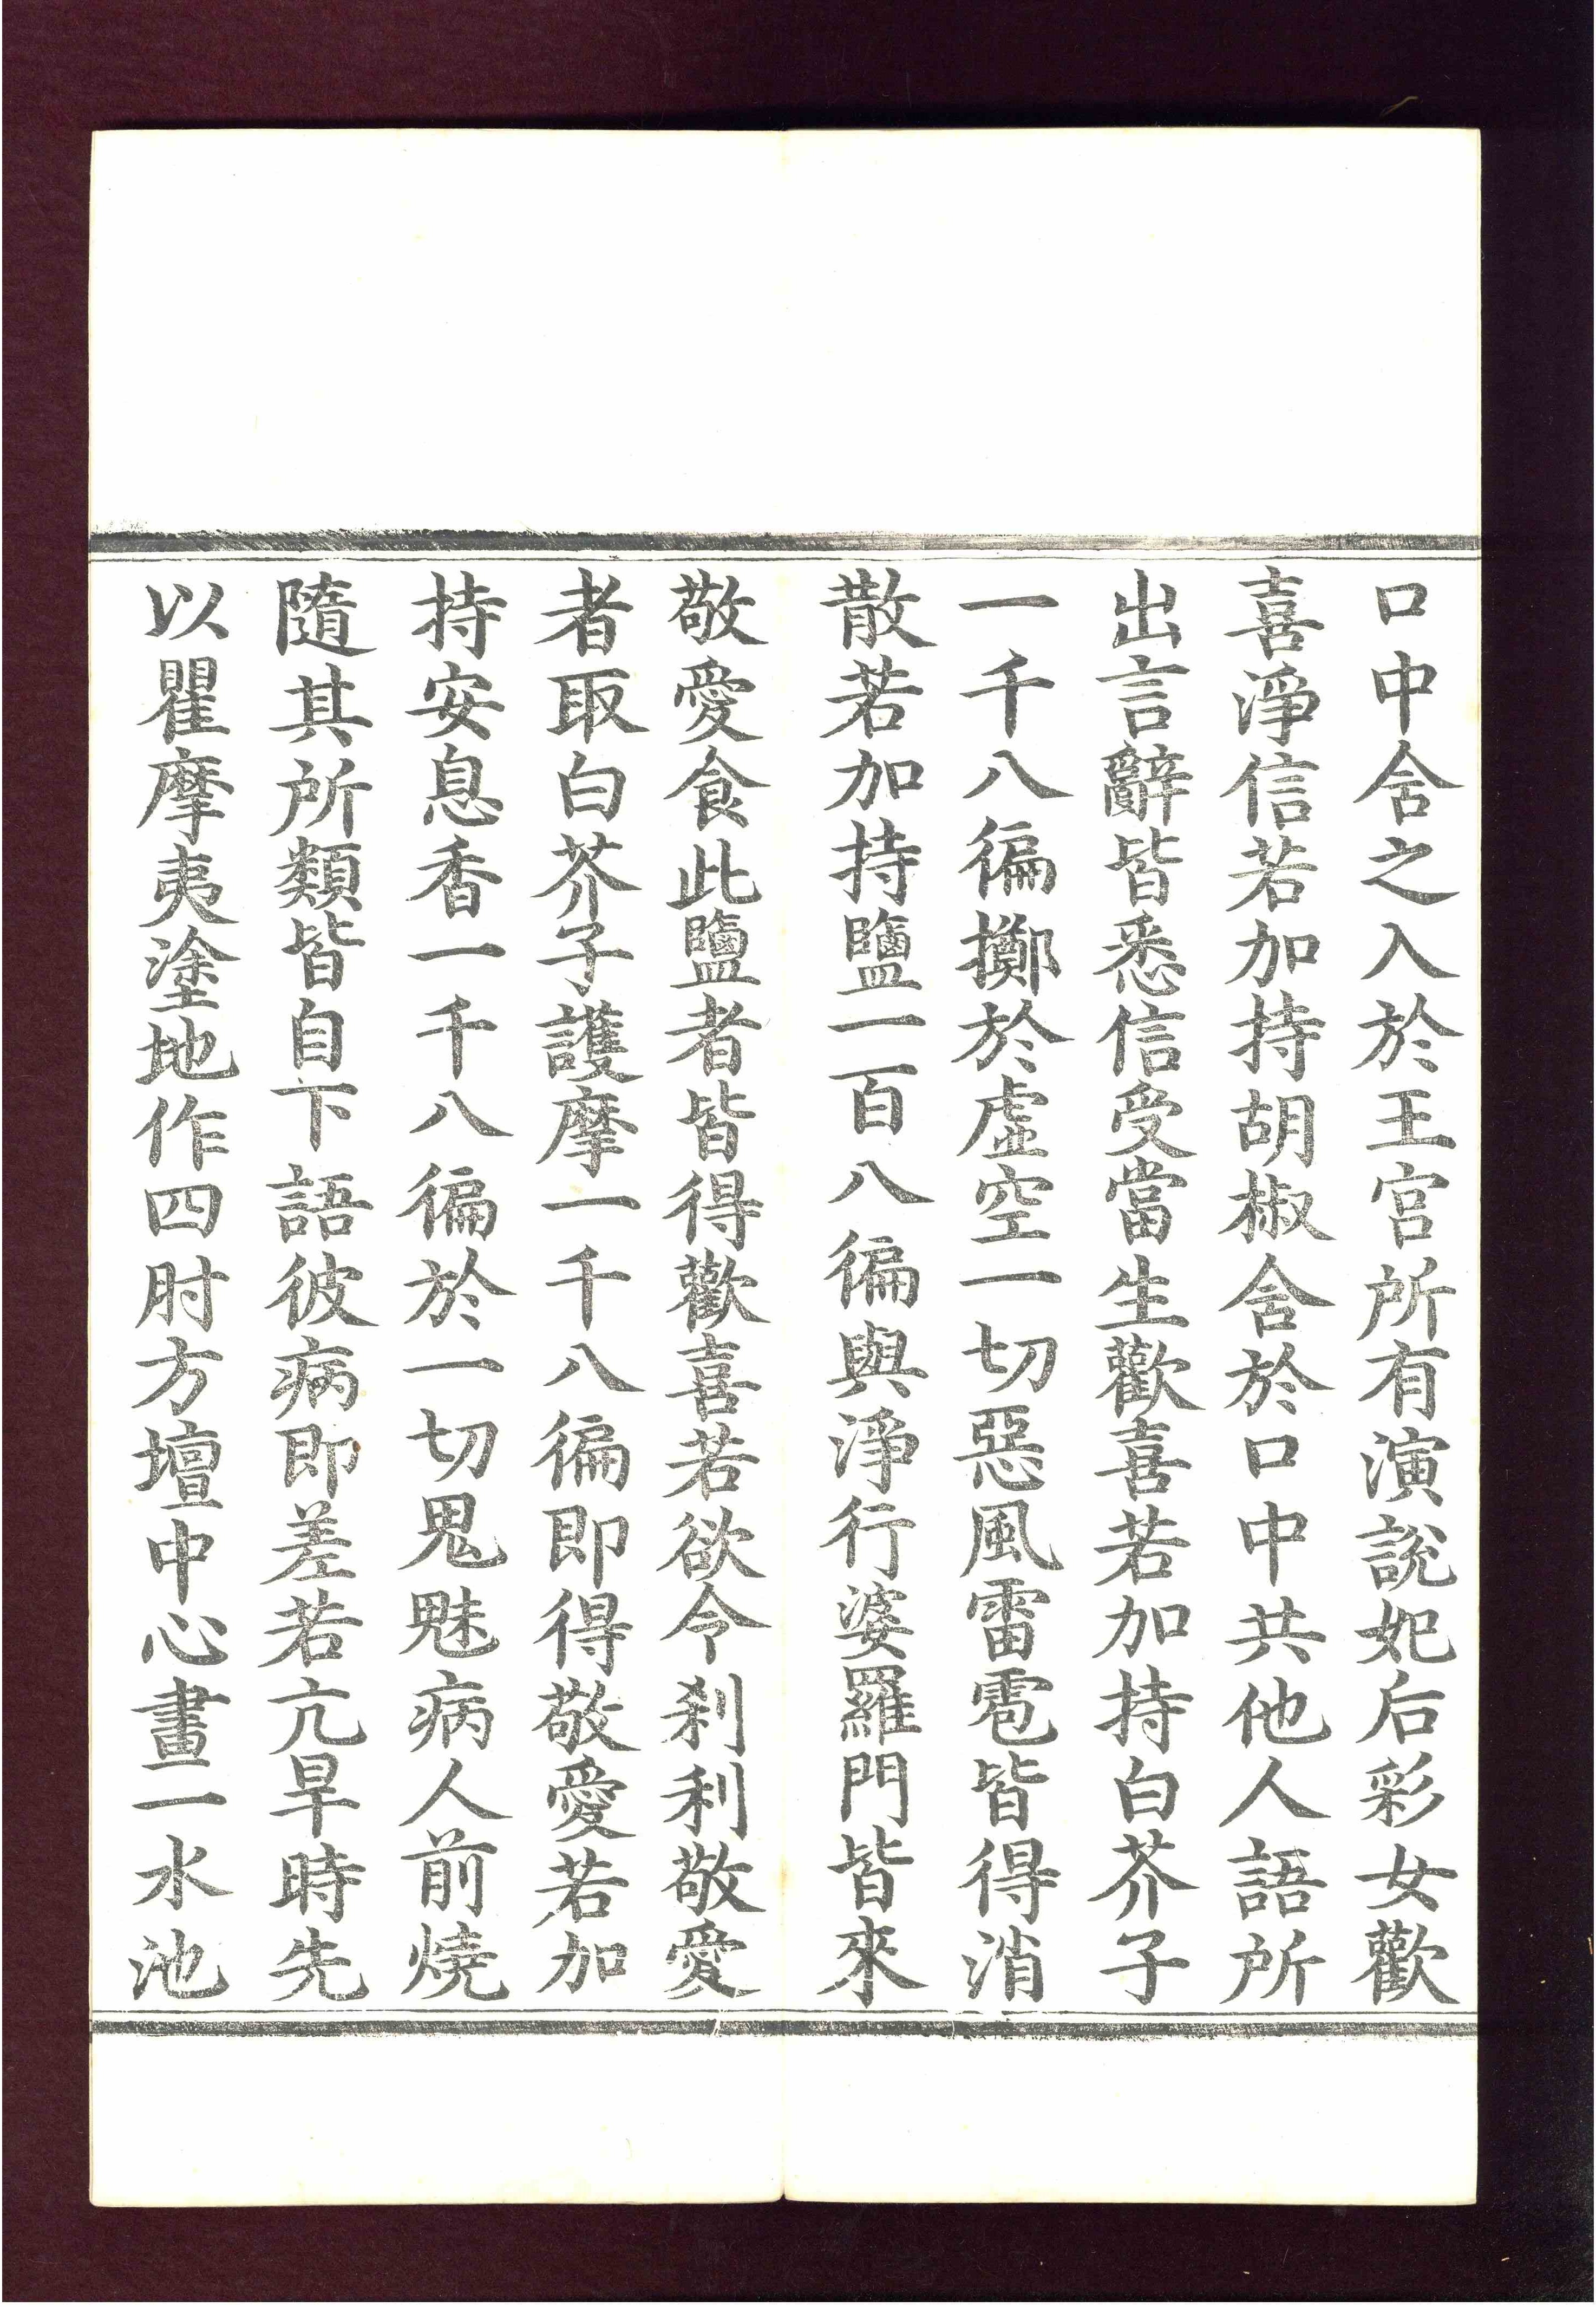 口中舍之入於王宫所有演說妃后彩女歡
喜淨信若加持胡椒舍於口中共他人語所
出言辭皆悉信受當生歡喜若加持白芥子
一千八徧擲於虛空一切惡風雷雹皆得消
散若加持鹽一百八徧與淨行婆羅門皆來
敬愛食此鹽者皆得歡喜若欲令刹利敬愛
者取白芥子護摩一千八徧即得敬愛若加
持安息香一千八徧於一切鬼魅病人前燒
隨其所類皆自下語彼病即差若亢旱時先
以瞿摩夷塗地作四肘方壇中心畫一水池